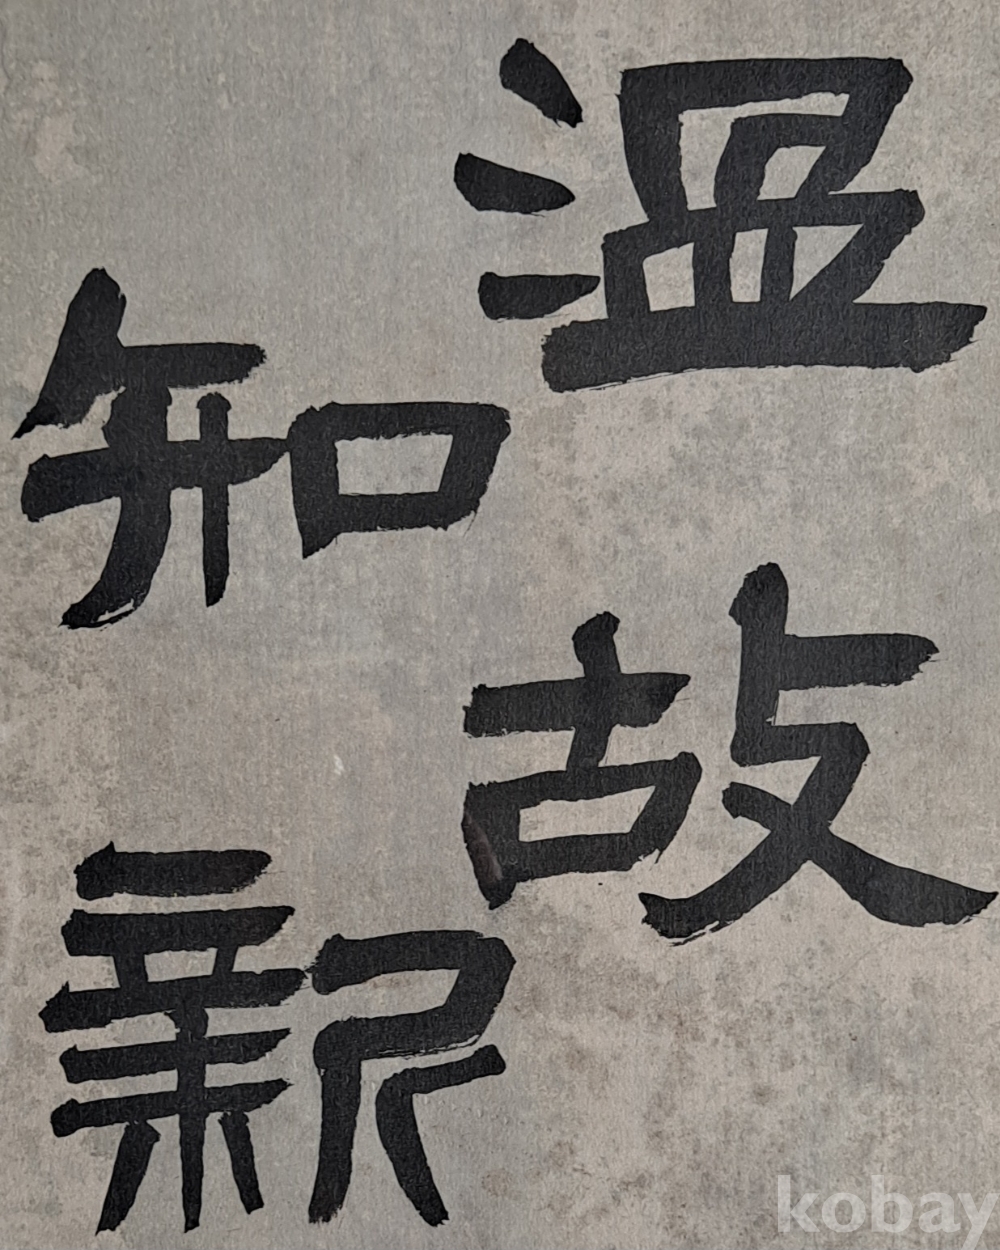 溫故
知新
kobay